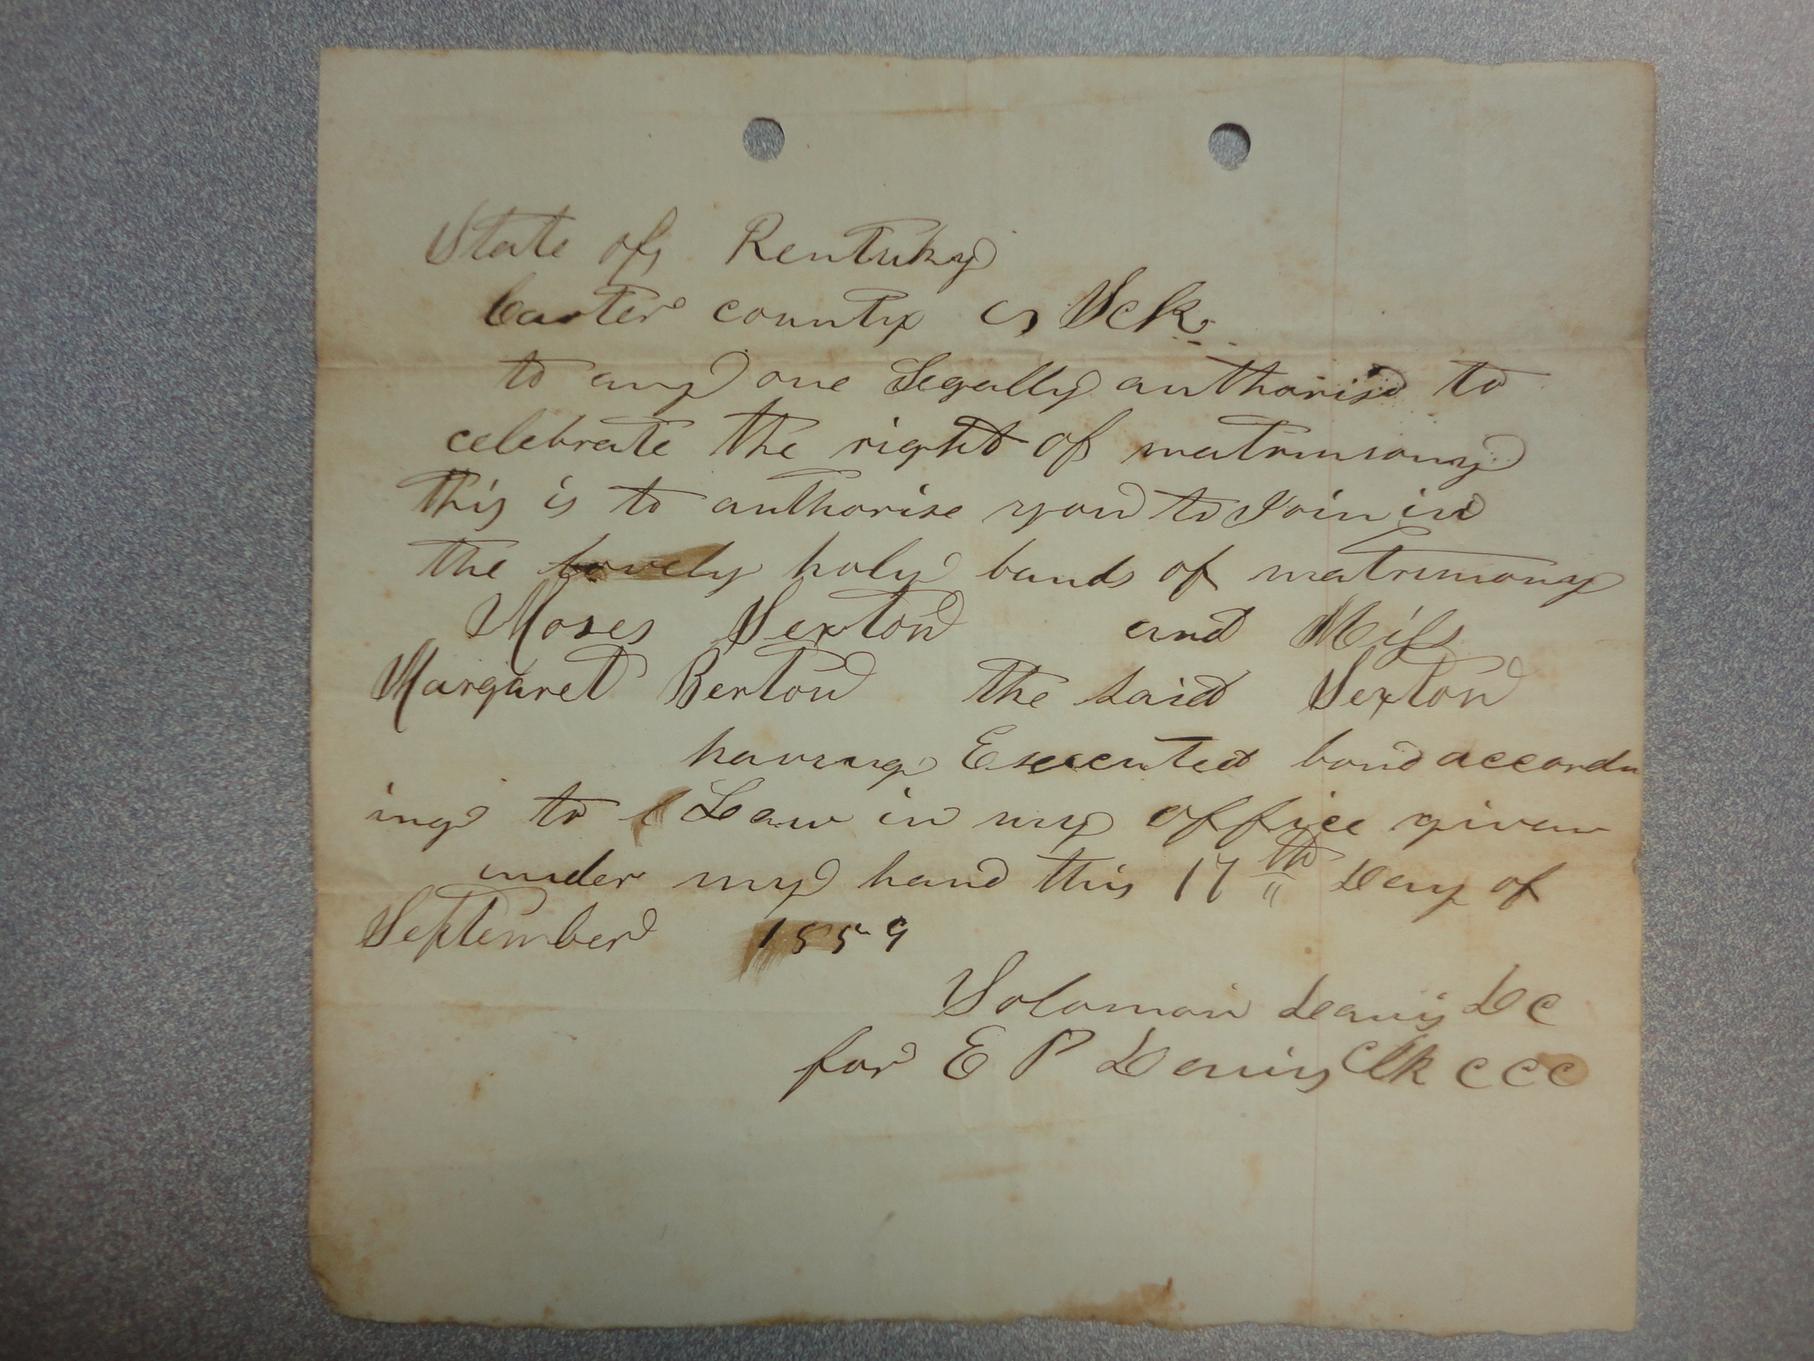 State of Kentuky
Carter county Sct
to any one Legally authorised to
celebrate the right of matrimony
this is to authorise you to Join in
the lovely holy bands of matrimony
Moses Sexton and Miss
Margaret Berton the said Sexton
having Executed bond accord
ing to Law in my office given
under my hand this 17th Day of
September 1859
Solomon Davis DC
for E P Davis Clk CCC